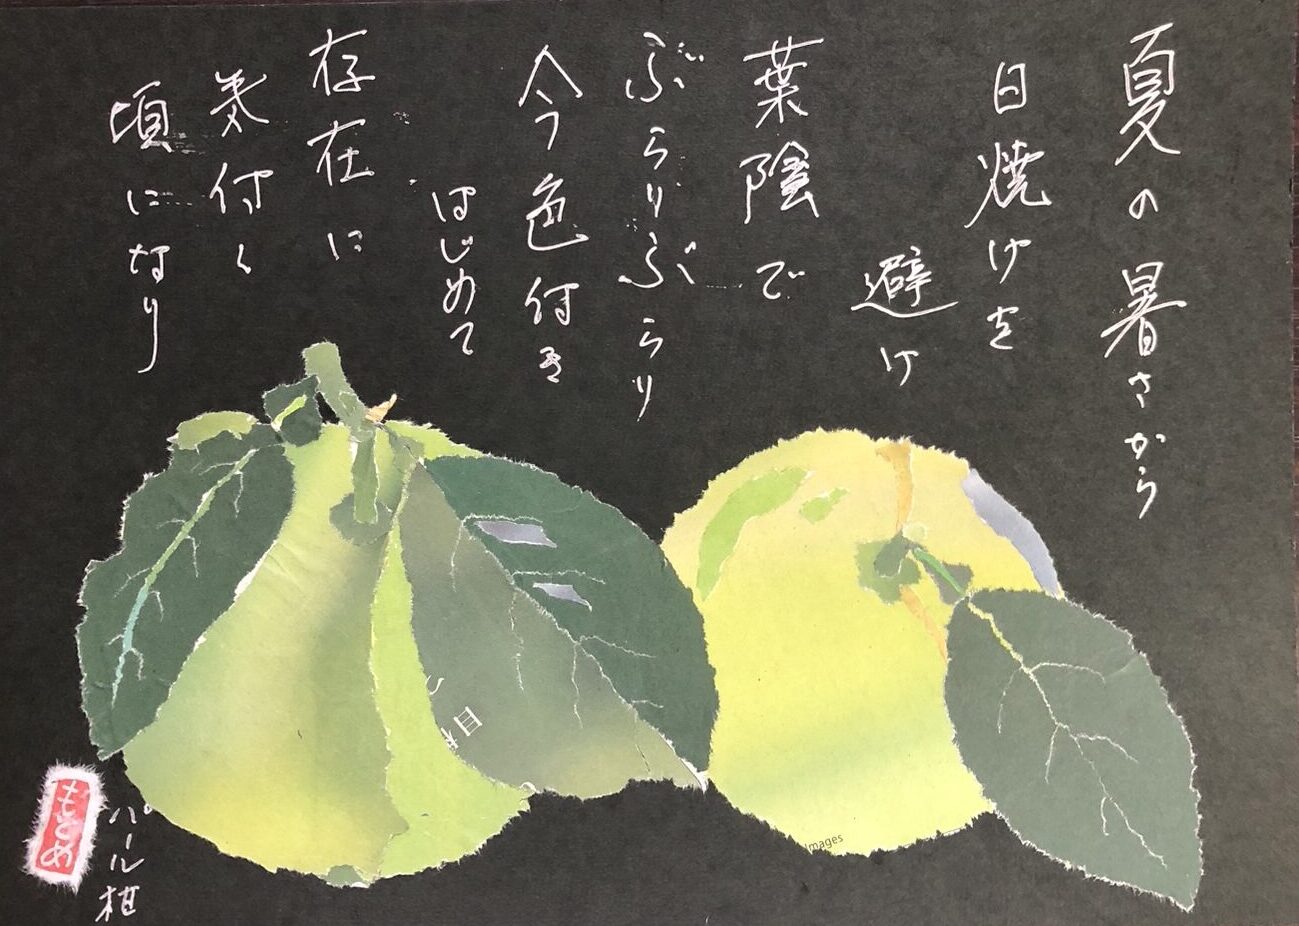 夏の暑さから
日焼けを
避け
葉陰で
ぶらりぶらり
今色付き
はじめて
存在に
気付く
頃になり
パール柑
もとめ
目
Images